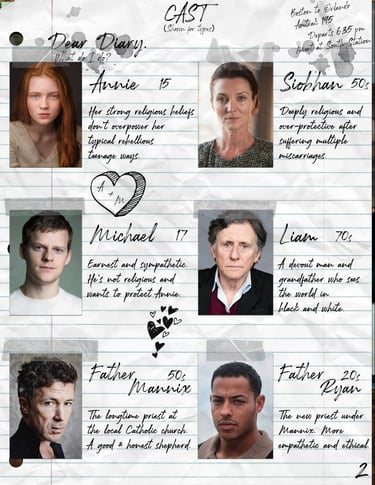 CAST
(Shown for types)
Boston to Orlando
Amtrak 195
Departs 6:35 pm
Dear Diary,
What do I do?
Annie 15
Her strong religious beliefs
don't overpower her
typical rebellious
teenage ways.
Siobhan 50s
Deeply religious and
over-protective after
suffering multiple
miscarriages.
A + M
Michael 17
Earnest and sympathetic.
He's not religious and
wants to protect Annie.
Liam 70s
A devout man and
grandfather who sees
the world in
black and white.
Father 50s
Mannix
The longtime priest at
the local Catholic church.
A good & honest shepherd.
Father 20s
Ryan
The new priest under
Mannix. More
empathetic and ethical.
2